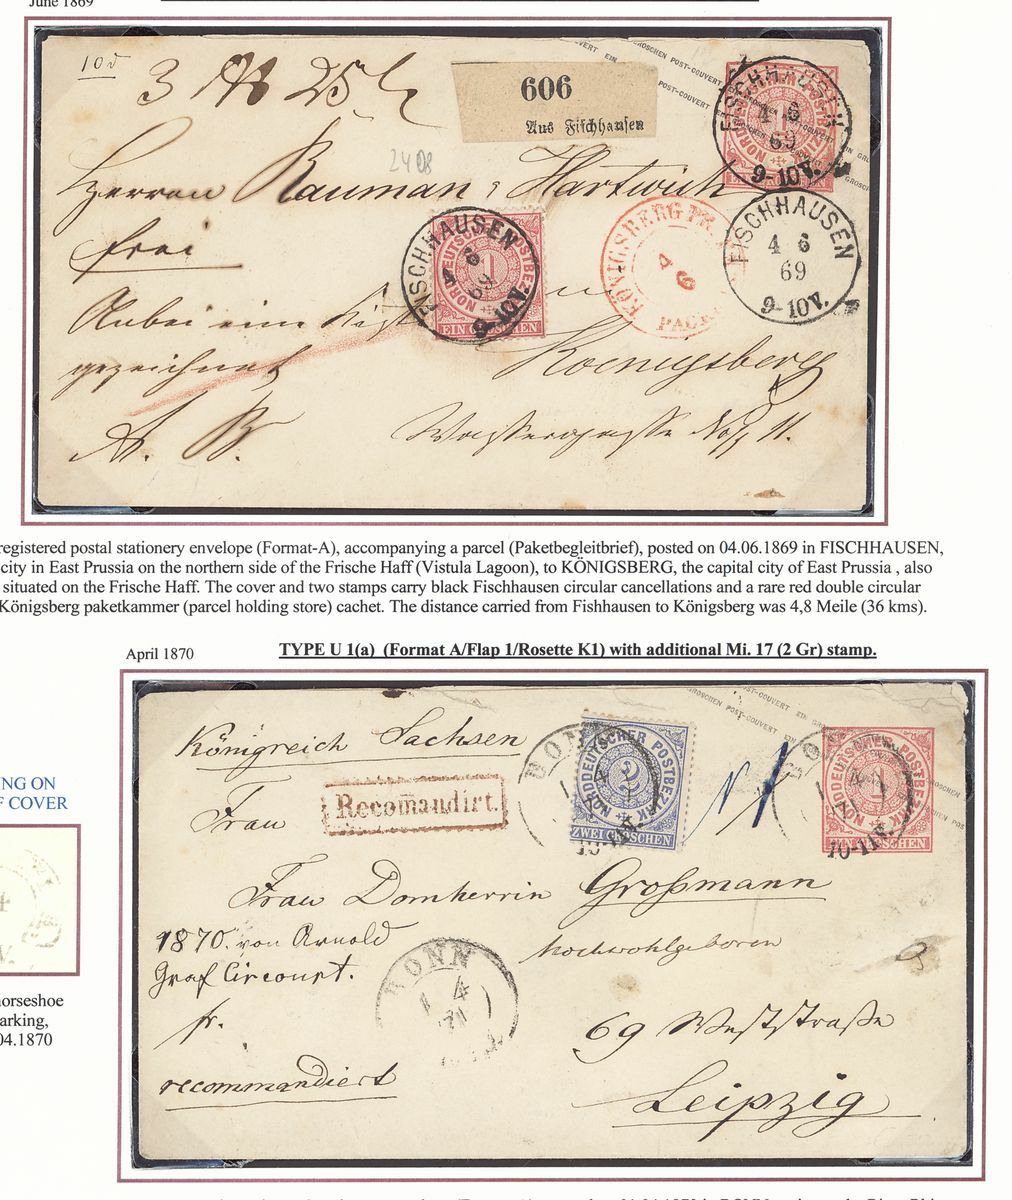 June 1869
10
3 25
606
Aus Fischhausen
EIN GROSCHEN POST-COUVERT
NORDDEUTSCHER POSTBEZIRK
EIN GROSCHEN
FISCHHAUSEN
4 6
69
9-10V.
2408
Herrn Kauman & Hartwich
frei
NORDDEUTSCHER POSTBEZIRK
1
EIN GROSCHEN
FISCHHAUSEN
4 6
69
9-10V.
KÖNIGSBERG I PR.
4 6
PACK
FISCHHAUSEN
4 6
69
9-10V.
Anbei eine Kiste
gezeichnet
Koenigsberg
Wassergasse No 11.
registered postal stationery envelope (Format-A), accompanying a parcel (Paketbegleitbrief), posted on 04.06.1869 in FISCHHAUSEN,
city in East Prussia on the northern side of the Frische Haff (Vistula Lagoon), to KÖNIGSBERG, the capital city of East Prussia , also
situated on the Frische Haff. The cover and two stamps carry black Fischhausen circular cancellations and a rare red double circular
Königsberg paketkammer (parcel holding store) cachet. The distance carried from Fishhausen to Königsberg was 4,8 Meile (36 kms).
April 1870
TYPE U 1(a) (Format A/Flap 1/Rosette K1) with additional Mi. 17 (2 Gr) stamp.
GROSCHEN POST-COUVERT EIN
Königreich Sachsen
Recomandirt.
BONN
NORDDEUTSCHER POSTBEZIRK
2
ZWEI GROSCHEN
NORDDEUTSCHER POSTBEZIRK
1
EIN GROSCHEN
10-11V.
Frau
Frau Domherrin Großmann
Hochwohlgeboren
1870. von Arnold
Graf Circourt.
fr.
recommandiert
BONN
1 4
69 Weststraße
Leipzig
NG ON
F COVER
horseshoe
arking,
04.1870